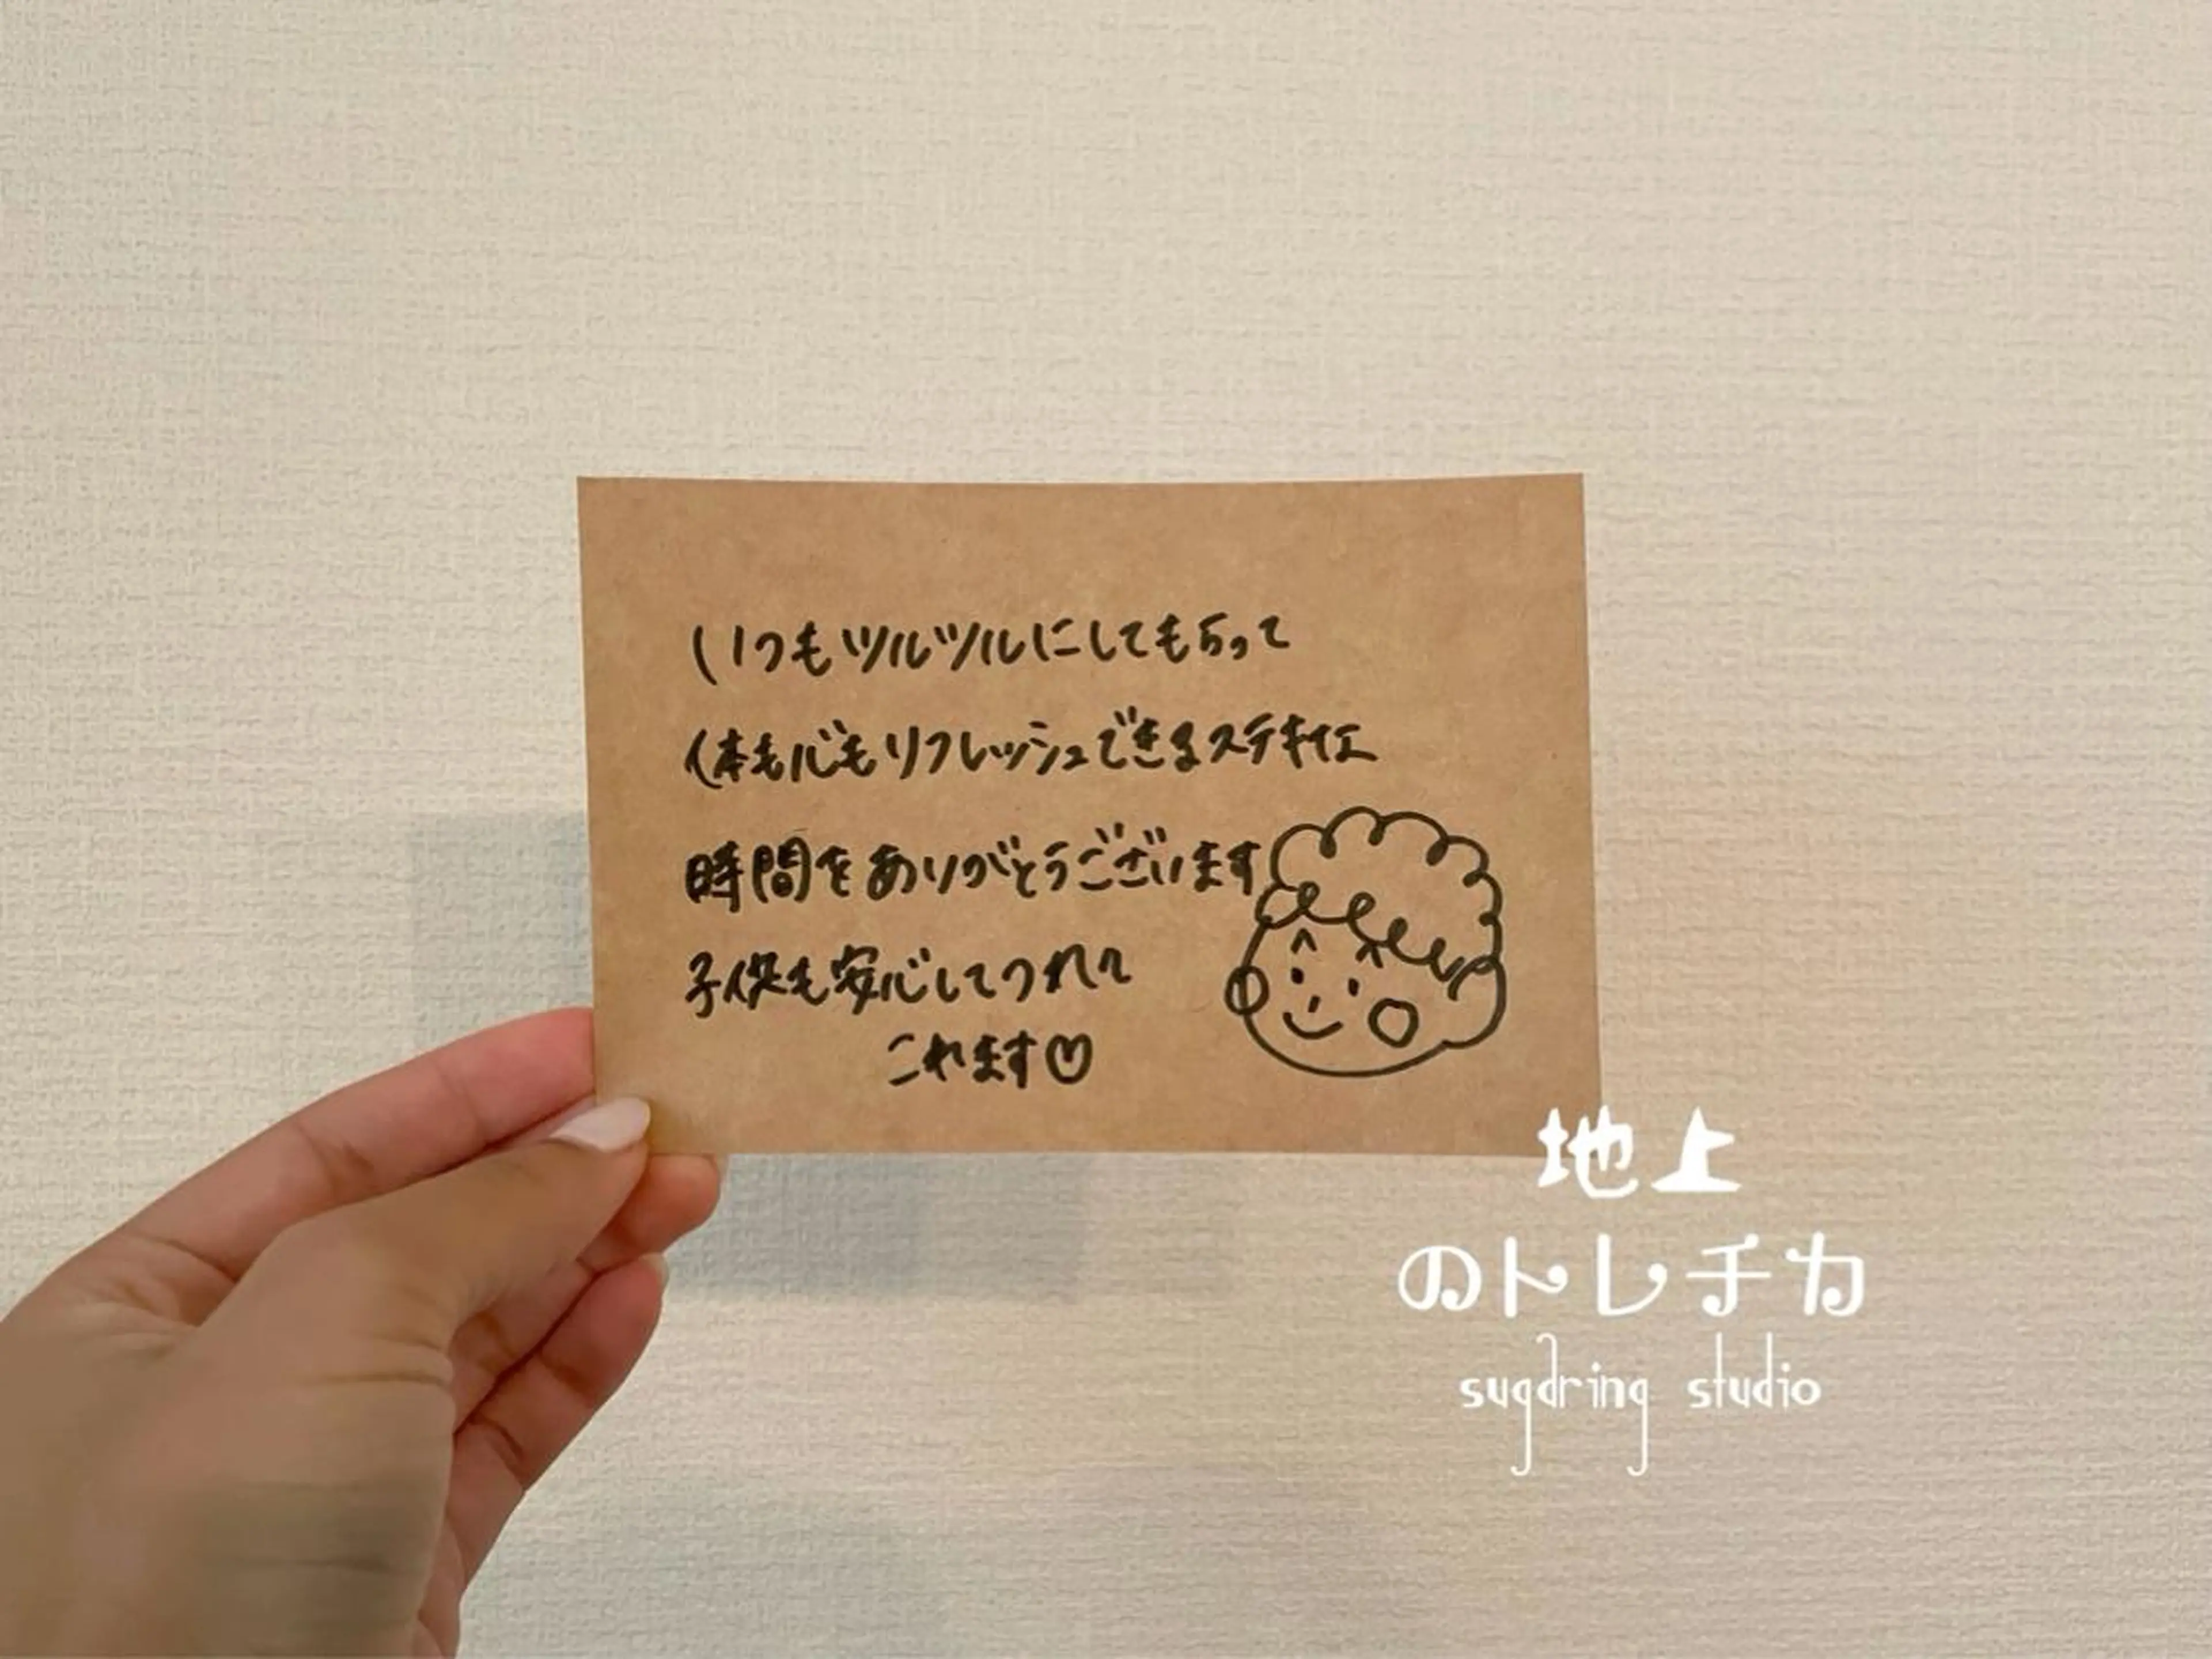 いつもツルツルにしてもらって
体も心もリフレッシュできるステキな
時間をありがとうございます
子供も安心してつれて
これます♡
地上
のトレチカ
sugaring studio